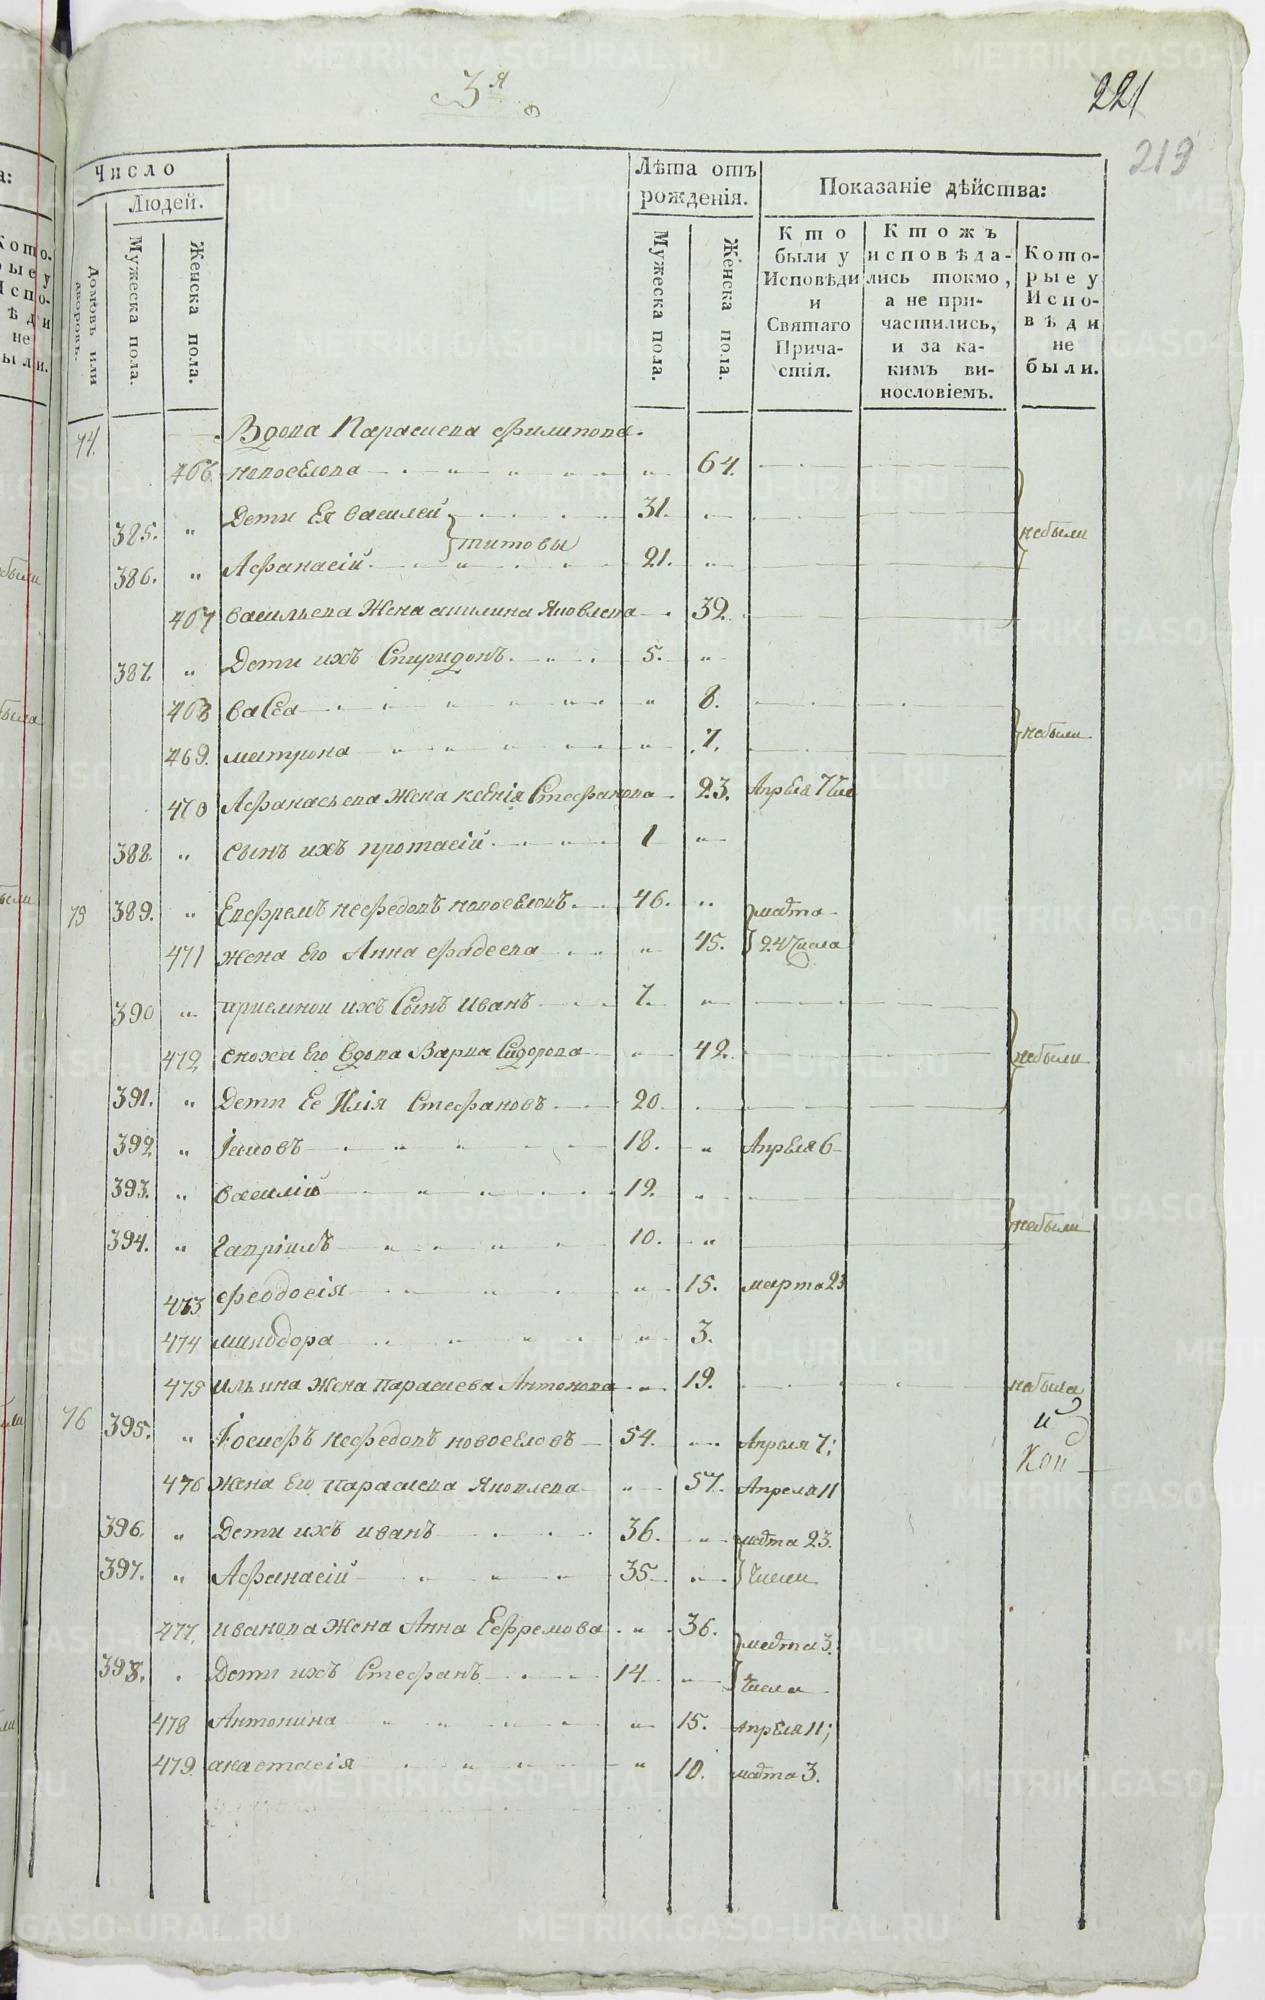 3я
221
219
Число
Людей.
Домовъ или дворовъ.
Мужеска пола.
Женска пола.
Лѣта отъ рожденія.
Мужеска пола.
Женска пола.
Показаніе дѣйства:
Кто были у Исповѣди и Святаго Причастія.
Ктожъ исповѣдались токмо, а не причастились, и за какимъ винословіемъ.
Которые у Исповѣди не были.
74. Вдова Парасиева Филипова
466. новосélова 64.
385. " Дети Ея василей 31.
титовы небыли
386. " Афанасій 21. "
467 васильева Жена акилина Яковлева 39.
387. " Дети ихъ Спиридонъ 5. "
468 васса " 8.
469. матрона " 7. небыли
470 Афанасьева жена ксенія Стефанова 23. Апреля 7 Чис
388. " сынъ ихъ протасій 1 "
75 389. " Ефремъ несфедовъ новоселовъ 46. " марта
471 жена Его Анна фадеева " 45. 24 Числа
390 " приемной ихъ Сынъ иванъ 7. "
472 сноха Его вдова Варва Сидорова " 42. небыли
391. " Дети Ее Илія Стефановъ 20.
392 " Іаковъ 18. " Апреля 6
393. " василій 12. "
394. " гавріилъ 10. " небыли
473 феодосія " 15. марта 23
474 минодора " 3.
475 ильина жена парасиева Антонова " 19. небыла
76 395. " Іосифъ несфедовъ новоселовъ 54. " Апреля 7;
и
Коп
476 жена Его парасиева Яковлева " 57. Апреля 11
396. " Дети ихъ иванъ 36. " марта 23.
397. " Афанасій 35 " Числа
477. иванова жена Анна Ефремова " 36. марта 3.
398. " Дети ихъ Стефанъ 14. " числа
478 Антонина " 15. Апреля 11;
479. анастасія " 10. марта 3.
METRIKI.GASO-URAL.RU